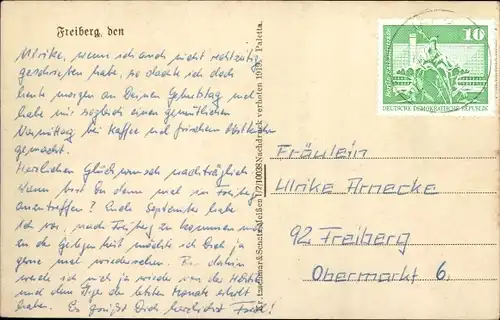 Freiberg, den
Ulrike, wenn ich auch nicht rechtzeitig
geschrieben habe, so dachte ich doch
heute morgen an Deinen Geburtstag und
habe mir sogleich einen gemütlichen
Vormittag bei Kaffee und frischem Obstkuchen
gemacht.
Herzlichen Glückwunsch nachträglich.
Wann bist Du denn mal in Freiberg
anzutreffen? Ende September habe
ich vor, nach Freiberg zu kommen und
an der Gelegenheit möchte ich Dich ja
gerne mal wiedersehen. Bis dahin
werde ich mich ja wieder von der
und dem der letzten Monate erholt
haben. Es grüßt Dich herzlichst
Meißen 1/210038 Nachdruck verboten Paletta.
10
DEUTSCHE DEMOKRATISCHE REPUBLIK
Fräulein
Ulrike Arnecke
92 Freiberg
Obermarkt 6.